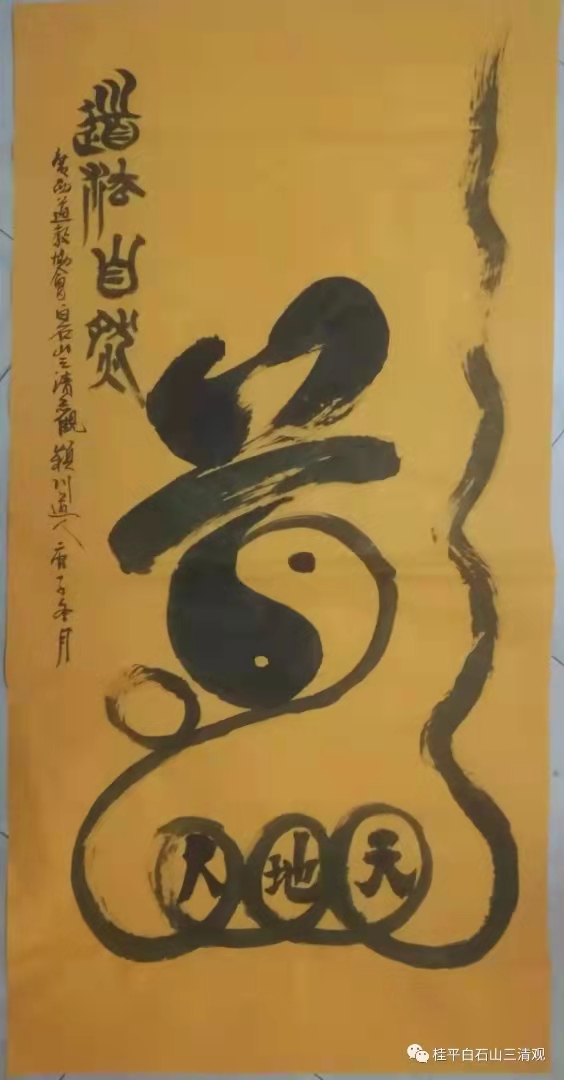 道法自然
广西道教协会白石山三清观颖川道人庚子冬月
道
天地人
桂平白石山三清观